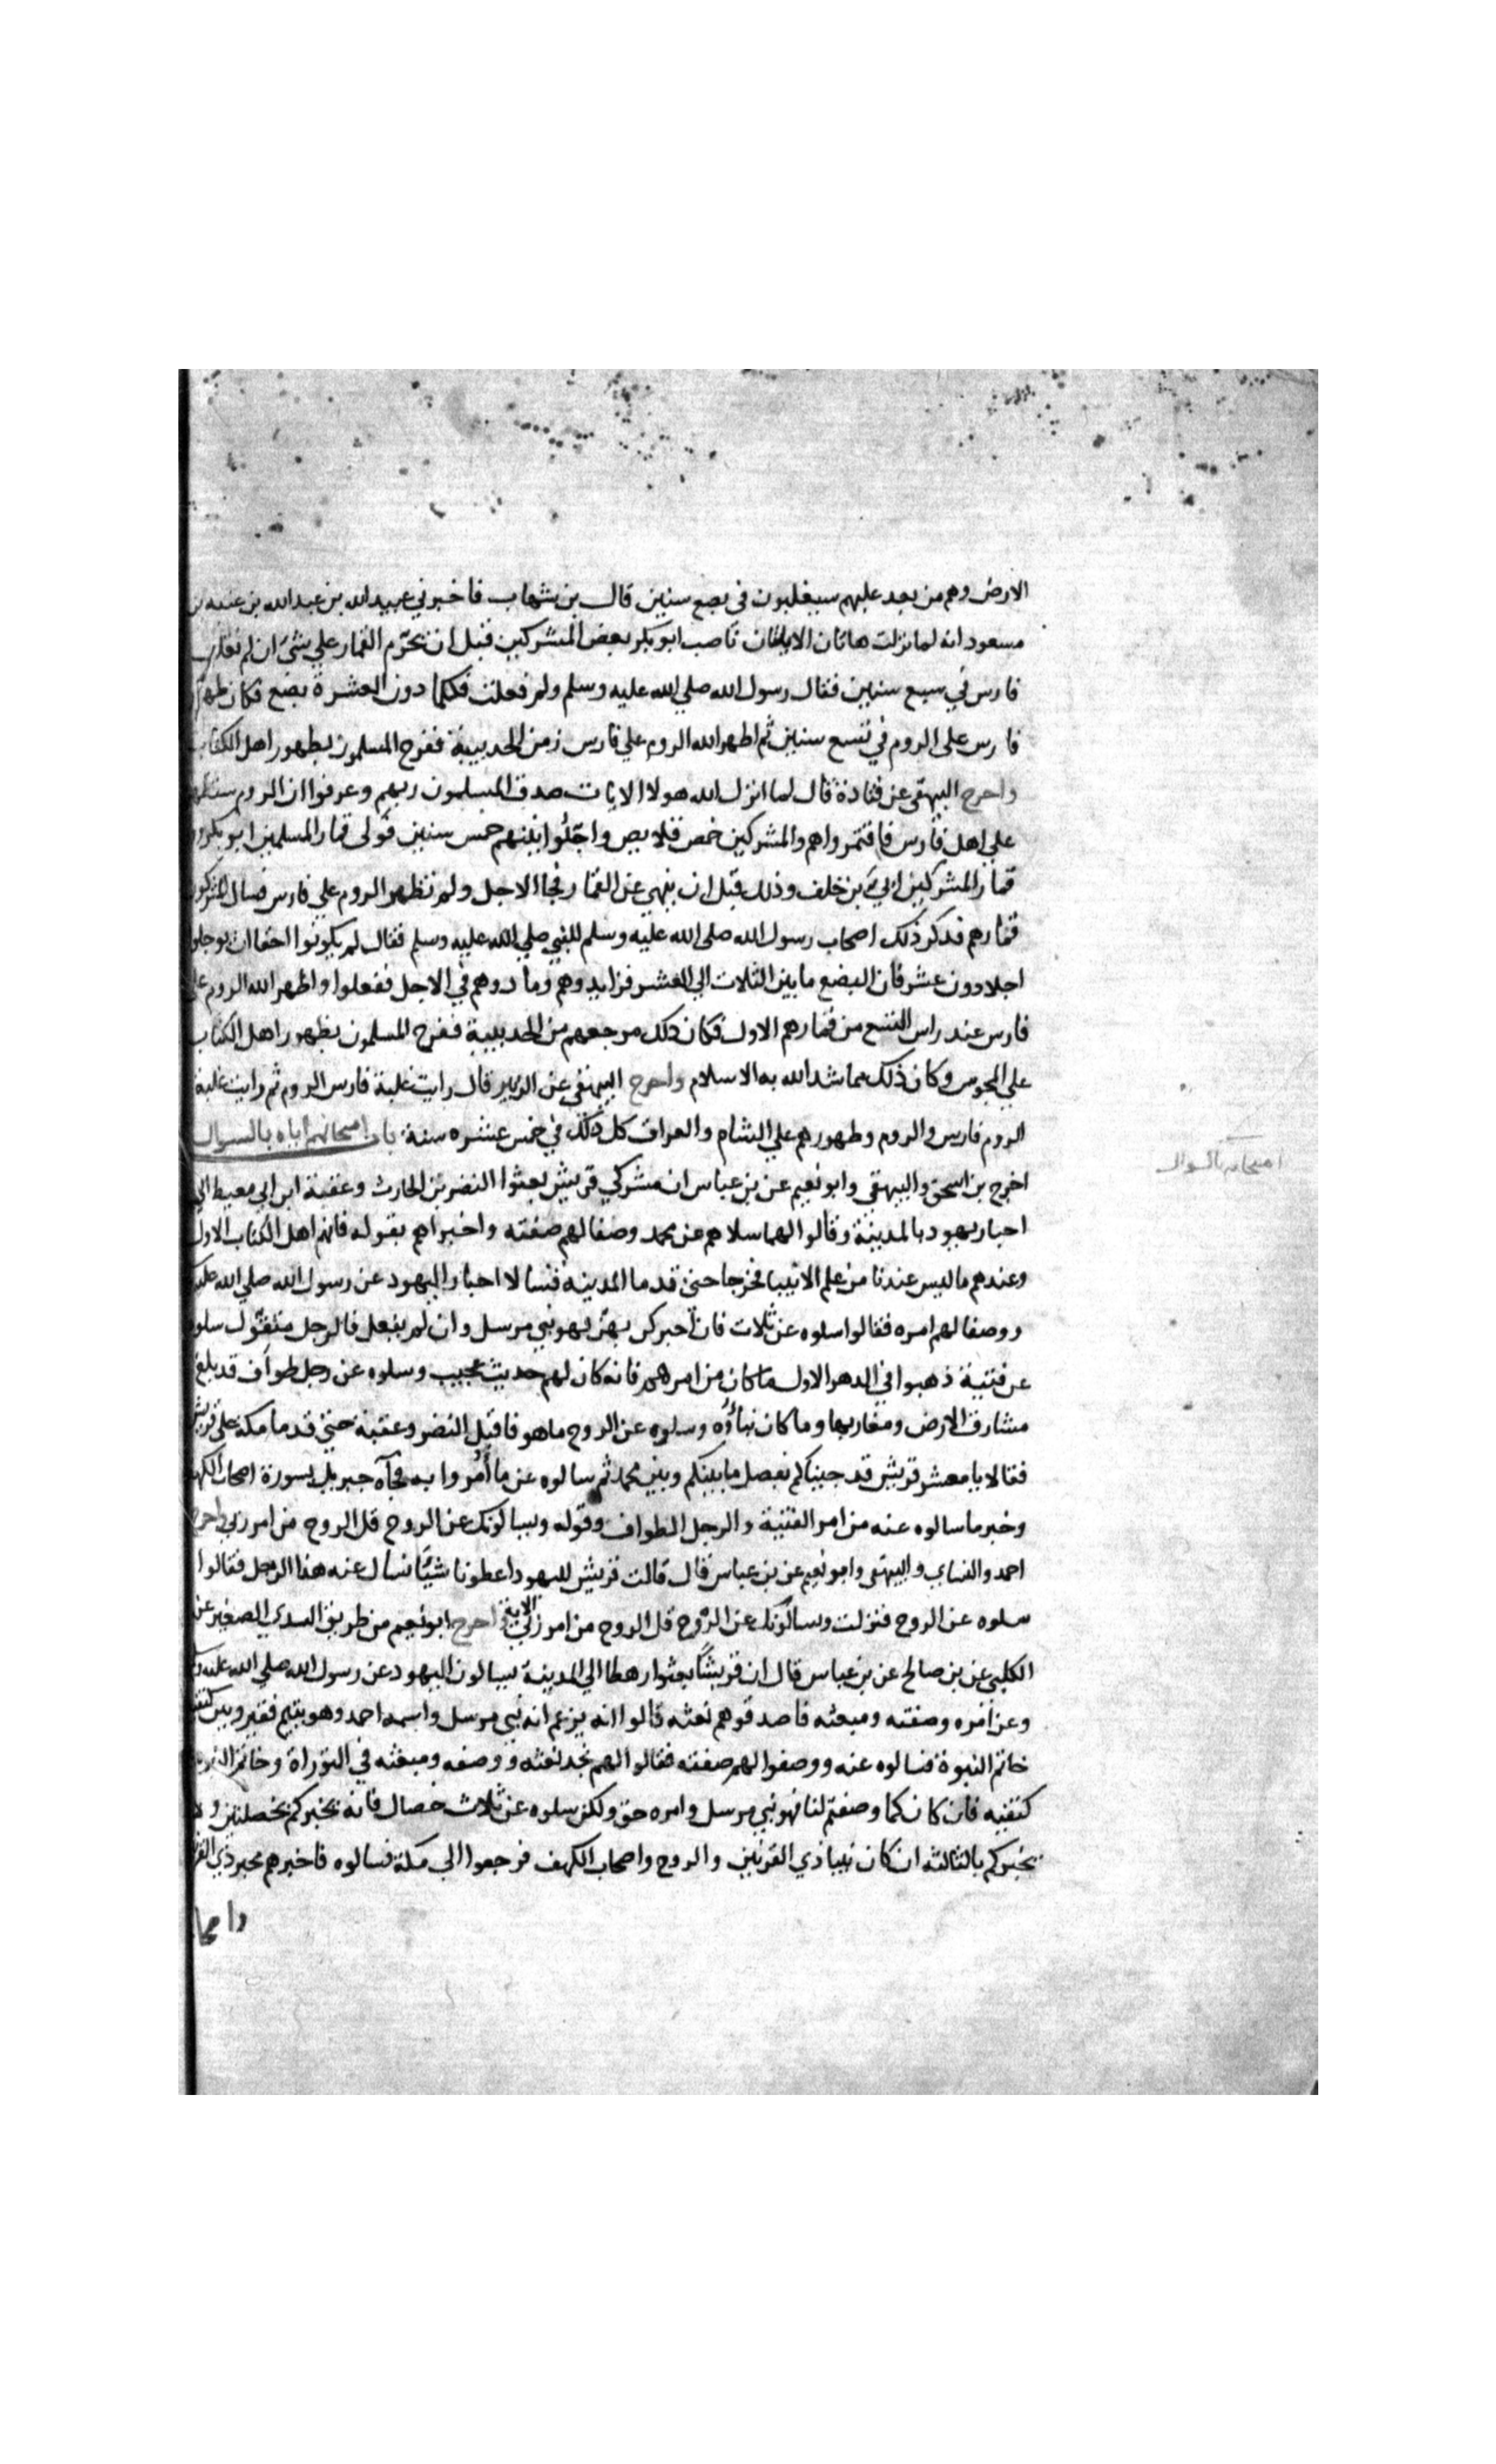 الارض وهم من بعد غلبهم سيغلبون في بضع سنين قال بن شهاب فاخبرني عبيد الله بن عبد الله بن عتبه بن
مسعود انه لما نزلت هاتان الايتان ناصب ابو بكر بعض المشركين قبل ان يحرّم القمار علي شيء ان لم تغلب
فارس في سبع سنين فقال رسول الله صلي الله عليه وسلم ولم فعلت فكلما دون العشرة بضع فكان ظهور
فارس على الروم في تسع سنين ثم اظهر الله الروم علي فارس زمن الحديبية ففرح المسلمون بظهور اهل الكتاب
واخرج البيهقي عن قتادة قال لما انزل الله هولا الايات صدق المسلمون ربهم وعرفوا ان الروم ستظهر
علي اهل فارس فاقتمروا هم والمشركين خمص قلايص واجّلوا بينهم خمس سنين فولى قمار المسلمين ابو بكر و
قمار المشركين ابيّ بن خلف وذلك قبل ان ينهي عن القمار فجا الاجل ولم تظهر الروم علي فارس فسال المشركون
قمارهم فذكر ذلك اصحاب رسول الله صلى الله عليه وسلم للنبي صلي الله عليه وسلم فقال لم يكونوا احقا ان يوجلوا
اجلا دون عشر فان البضع ما بين الثلاث الي العشر فزايدوهم ومادوهم في الاجل ففعلوا واظهر الله الروم على
فارس عند راس التسع من قمارهم الاول فكان ذلك مرجعهم من الحديبية ففرح المسلمون بظهور اهل الكتاب
علي المجوس وكان ذلك مما شد الله به الاسلام واخرج البيهقي عن الزبير قال رايت غلبة فارس الروم ثم رايت غلبة
الروم فارس والروم وظهورهم علي الشام والعراق كل ذلك في خمس عشره سنة باب امتحانهم اياه بالسوال
امتحانه بالسوال
اخرج بن اسحق والبيهقي وابو نعيم عن بن عباس ان مشركي قريش بعثوا النضر بن الحارث وعقبة ابن ابي معيط الي
احبار يهود بالمدينة وقالوا لهما سلاهم عن محمد وصفا لهم صفته واخبراهم بقوله فانهم اهل الكتاب الاول
وعندهم ما ليس عندنا من علم الانبيا فخرجا حتى قدما المدينه فسالا احبار اليهود عن رسول الله صلي الله عليه
ووصفا لهم امره فقالوا سلوه عن ثلاث فان اخبركم بهن فهو نبي مرسل وان لم يفعل فالرجل متقوّل سلوه
عن فتية ذهبوا في الدهر الاول ما كان من امرهم فانه كان لهم حديث عجيب وسلوه عن رجل طواف قد بلغ
مشارق الارض ومغاربها وما كان نباؤه وسلوه عن الروح ما هو فاقبل النضر وعقبة حتي قدما مكة على قريش
فقالا يا معشر قريش قد جيناكم بفصل ما بينكم وبين محمد ثم سالوه عن ما أمروا به فجآه جبريل بسورة اصحاب الكهف
وخبر ما سالوه عنه من امر الفتية والرجل الطواف وقوله ويسالونك عن الروح قل الروح من امر ربي واخرج
احمد والنساي والبيهقي وابو نعيم عن بن عباس قال قالت قريش لليهود اعطونا شيئا نسال عنه هذا الرجل فقالوا
سلوه عن الروح فنزلت ويسالونك عن الرّوح قل الروح من امر ربّي الاية واخرج ابو نعيم من طريق السدي الصغير عن
الكلبي عن بن صالح عن بن عباس قال ان قريشًا بعثوا رهطا الي المدينة يسالون اليهود عن رسول الله صلي الله عليه و
وعن امره وصفته ومبعثه فاصدقوهم نعته قالوا انه يزعم انه نبي مرسل واسمه احمد وهو يتيم فقير وبين كتفيه
خاتم النبوة فسالوه عنه ووصفوا لهم صفته فقالوا لهم نجد نعته ووصفه ومبعثه في التوراة وخاتم النبوة
كتفيه فان كان كما وصفتم لنا فهو نبي مرسل وامره حق ولكن سلوه عن ثلاث خصال فانه يخبركم بخصلتين ولا
يخبركم بالثالثه ان كان نبيا ذي القرنين والروح واصحاب الكهف فرجعوا الي مكة فسالوه فاخبرهم بخبر ذي القر